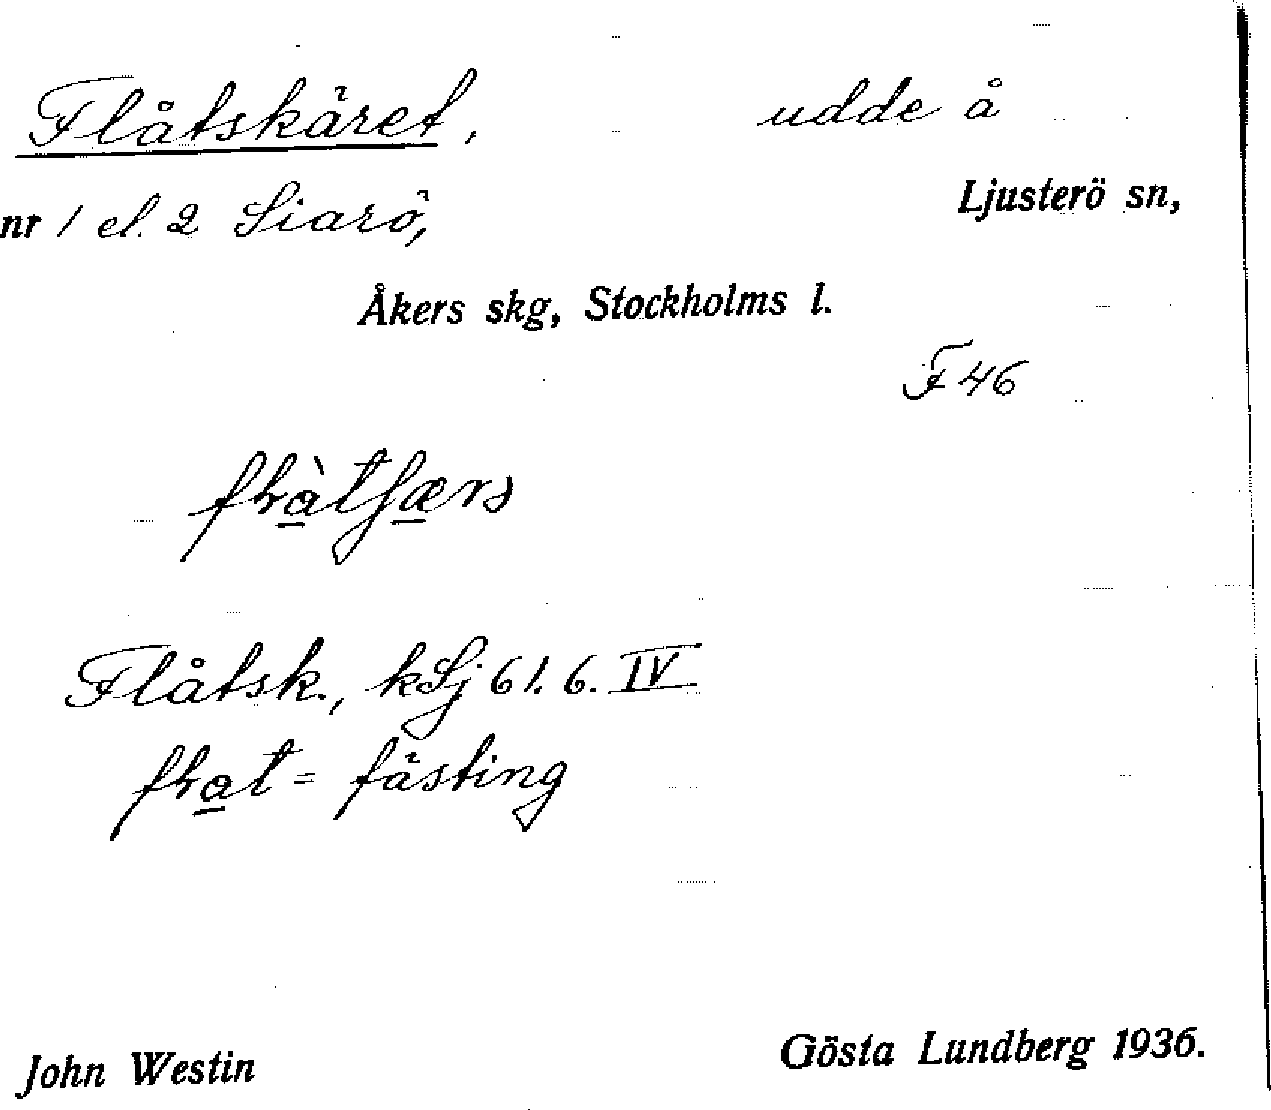 Flåtskäret, udde å
nr 1 el. 2 Siarö, Ljusterö sn,
Åkers skg, Stockholms l.
F 46
Flåtsk., kSj 61. 6. IV
= fästing
John Westin Gösta Lundberg 1936.